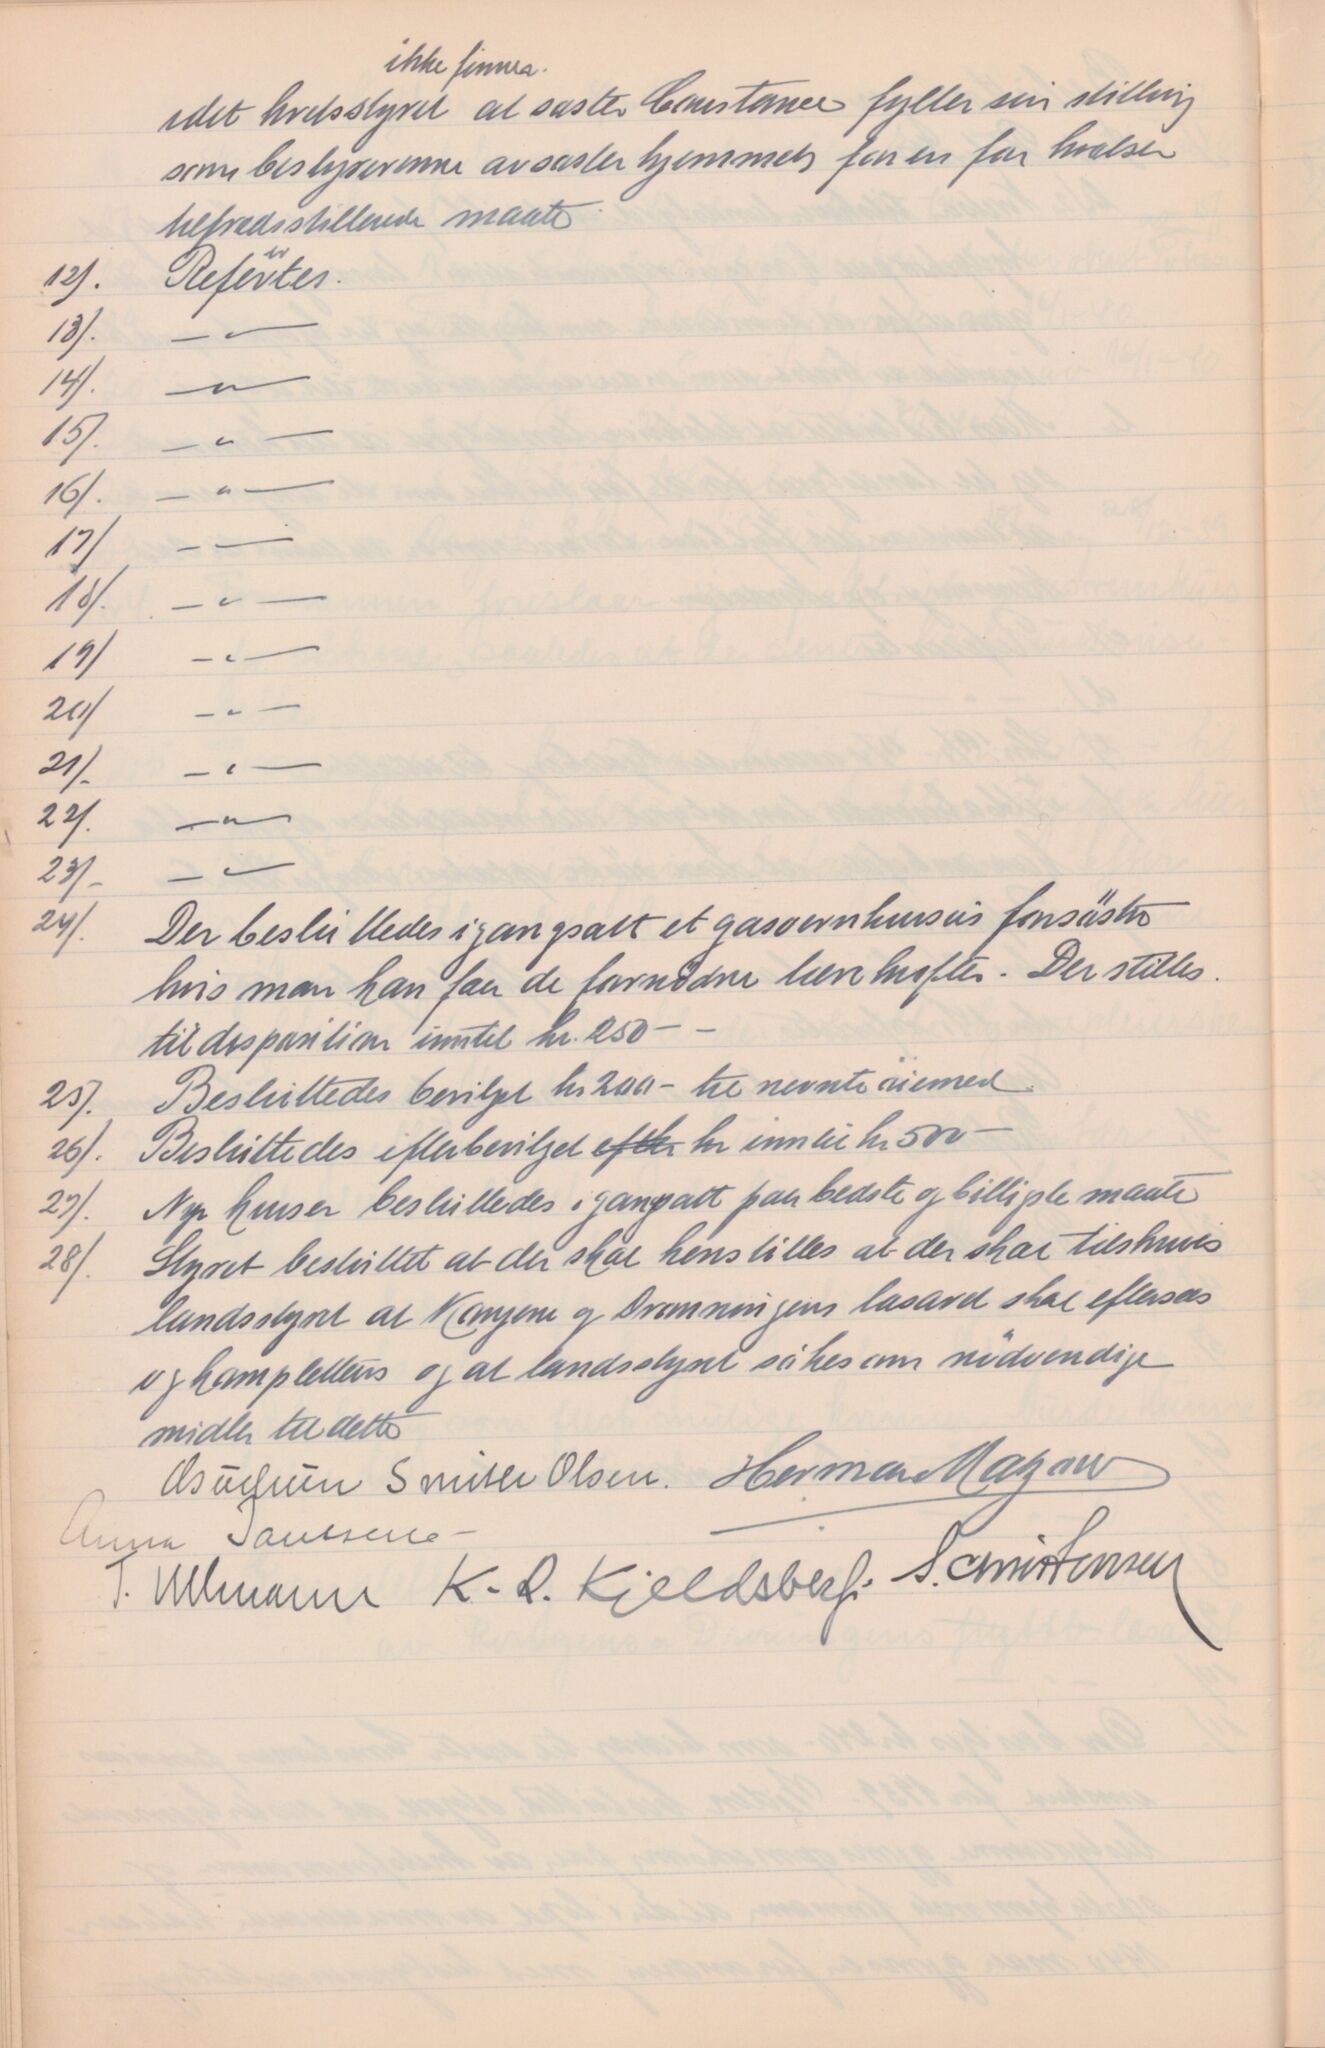 ikke finner
idet kretsstyret at søster Constance fyller sin stilling
som bestyrerinne av søsterhjemmet paa en for kretsen
tilfredsstillende maate.
12/. Refertes.
13/. — " —
14/. — " —
15/. — " —
16/. — " —
17/ — " —
18/. — " —
19/ — " —
20/ — " —
21/. — " —
22/. — " —
23/. — " —
24/. Der besluttedes igangsatt et gasvernkursus for søstre
hvis man kan faa de fornødne lærekrefter. Der stilles
til disposition inntil kr. 250—
25/. Besluttedes bevilget kr 200— til nevnte øiemed.
26/. Besluttedes efterbevilget efter kr inntil kr 500—
27/. Nye kurser besluttedes igangsatt paa bedste og billigste maate
28/. Styret besluttet at der skal henstilles at der skal tilskrives
landsstyret at Kongens og Dronningens lasaret skal eftersees
og kompletteres og at landsstyret søkes om nødvendige
midler til dette
Smith Olsen. Herman
Anna
T. Ullmann K. D. Kjeldsberg. S. Christensen